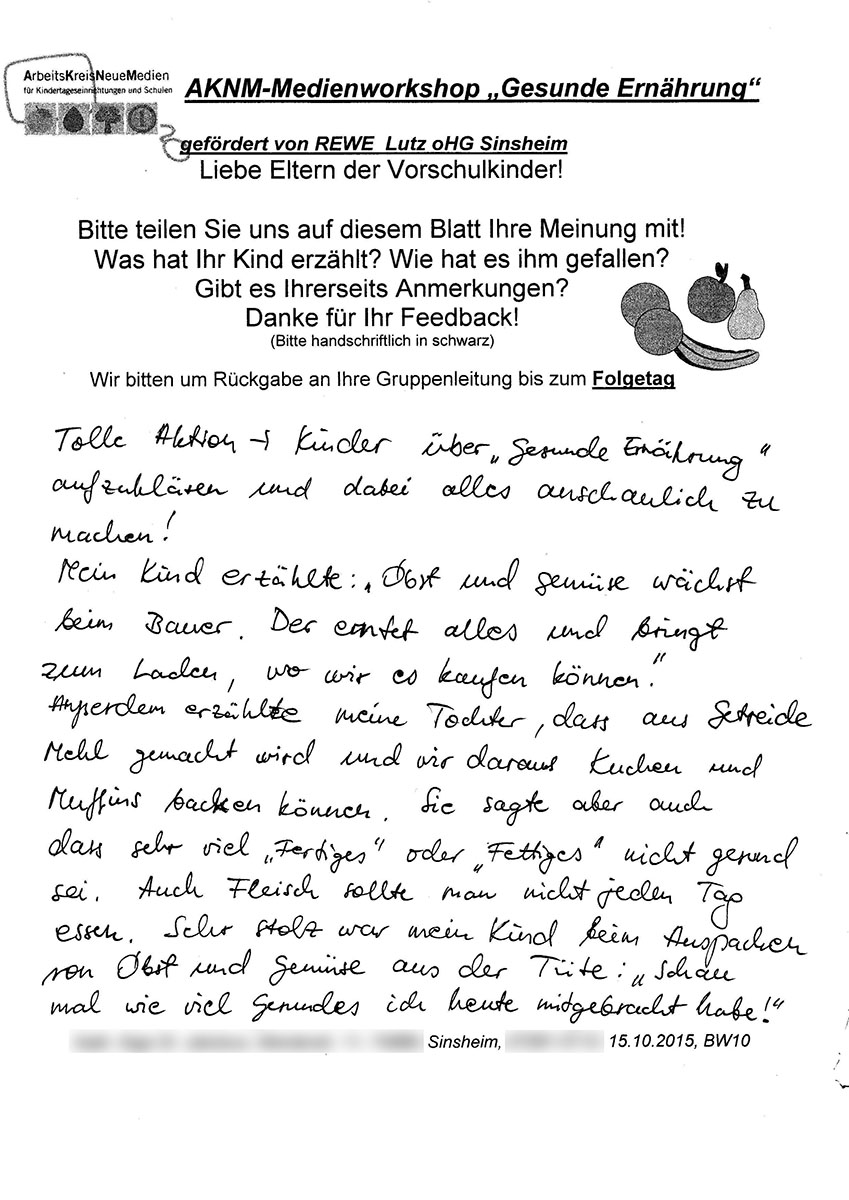 ArbeitsKreisNeueMedien
für Kindertageseinrichtungen und Schulen
AKNM-Medienworkshop „Gesunde Ernährung“
gefördert von REWE Lutz oHG Sinsheim
Liebe Eltern der Vorschulkinder!
Bitte teilen Sie uns auf diesem Blatt Ihre Meinung mit!
Was hat Ihr Kind erzählt? Wie hat es ihm gefallen?
Gibt es Ihrerseits Anmerkungen?
Danke für Ihr Feedback!
(Bitte handschriftlich in schwarz)
Wir bitten um Rückgabe an Ihre Gruppenleitung bis zum Folgetag
Tolle Aktion → Kinder über „gesunde Ernährung“
aufzuklären und dabei alles anschaulich zu
machen!
Mein Kind erzählte: „Obst und gemüse wächst
beim Bauer. Der erntet alles und bringt
zum Laden, wo wir es kaufen können.“
Außerdem erzählte meine Tochter, dass aus Getreide
Mehl gemacht wird und wir daraus Kuchen und
Muffins backen können. Sie sagte aber auch
dass sehr viel „Fertiges“ oder „Fettiges“ nicht gesund
sei. Auch Fleisch sollte man nicht jeden Tag
essen. Sehr stolz war mein Kind beim Auspacken
von Obst und Gemüse aus der Tüte: „Schau
mal wie viel Gesundes ich heute mitgebracht habe!“
Sinsheim, 15.10.2015, BW10